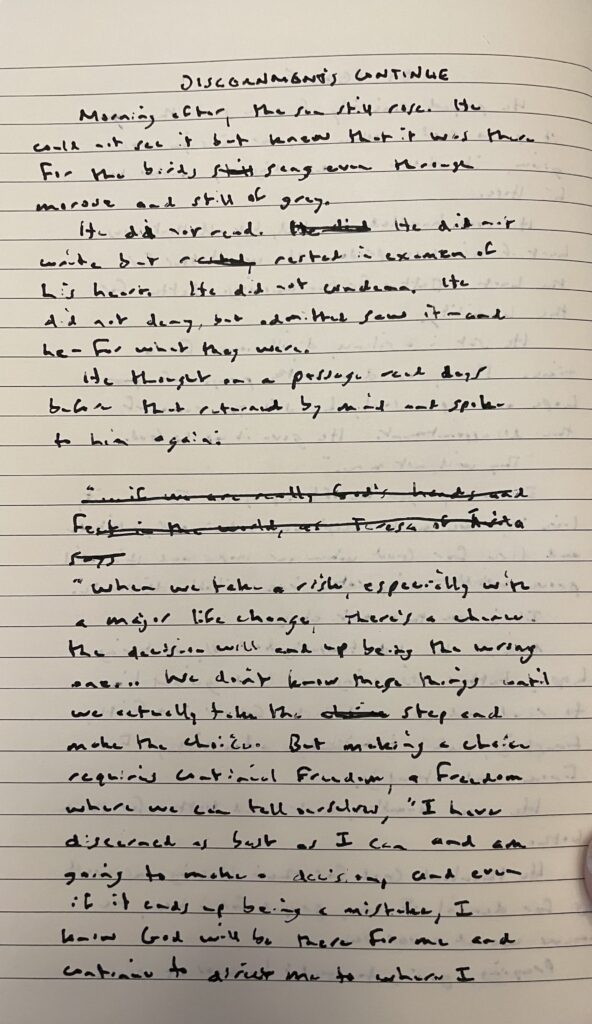 DISCERNMENTS CONTINUE
Morning after, the sun still rose. He
could not see it but knew that it was there
for the birds still sang even through
morose and still of grey.
He did not read. He did He did not
write but rested in examen of
his heart. He did not condemn. He
did not deny, but admitted saw it—and
he—for what they were.
He thought on a passage read days
before that returned by mind and spoke
to him again:
"...if we are really God's hands and
feet in the world, as Teresa of Ávila
says
"When we take a risk, especially with
a major life change, there's a chance
the decision will end up being the wrong
one... We don't know these things until
we actually take the step and
make the choice. But making a choice
requires continued freedom, a freedom
where we can tell ourselves, "I have
discerned as best as I can and am
going to make a decision, and even
if it ends up being a mistake, I
know God will be there for me and
continue to direct me to where I